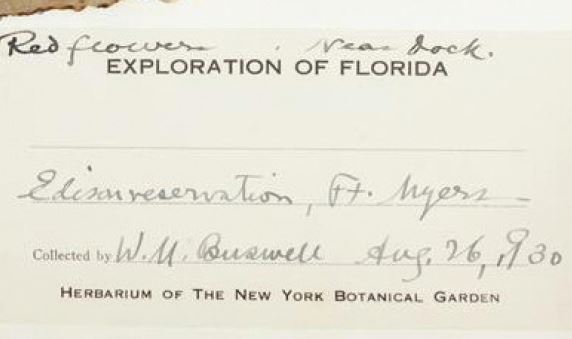 Red flowers. Near dock.
EXPLORATION OF FLORIDA
Edison reservation, Ft. Myers
Collected by W. M. Buswell Aug. 26, 1930
HERBARIUM OF THE NEW YORK BOTANICAL GARDEN